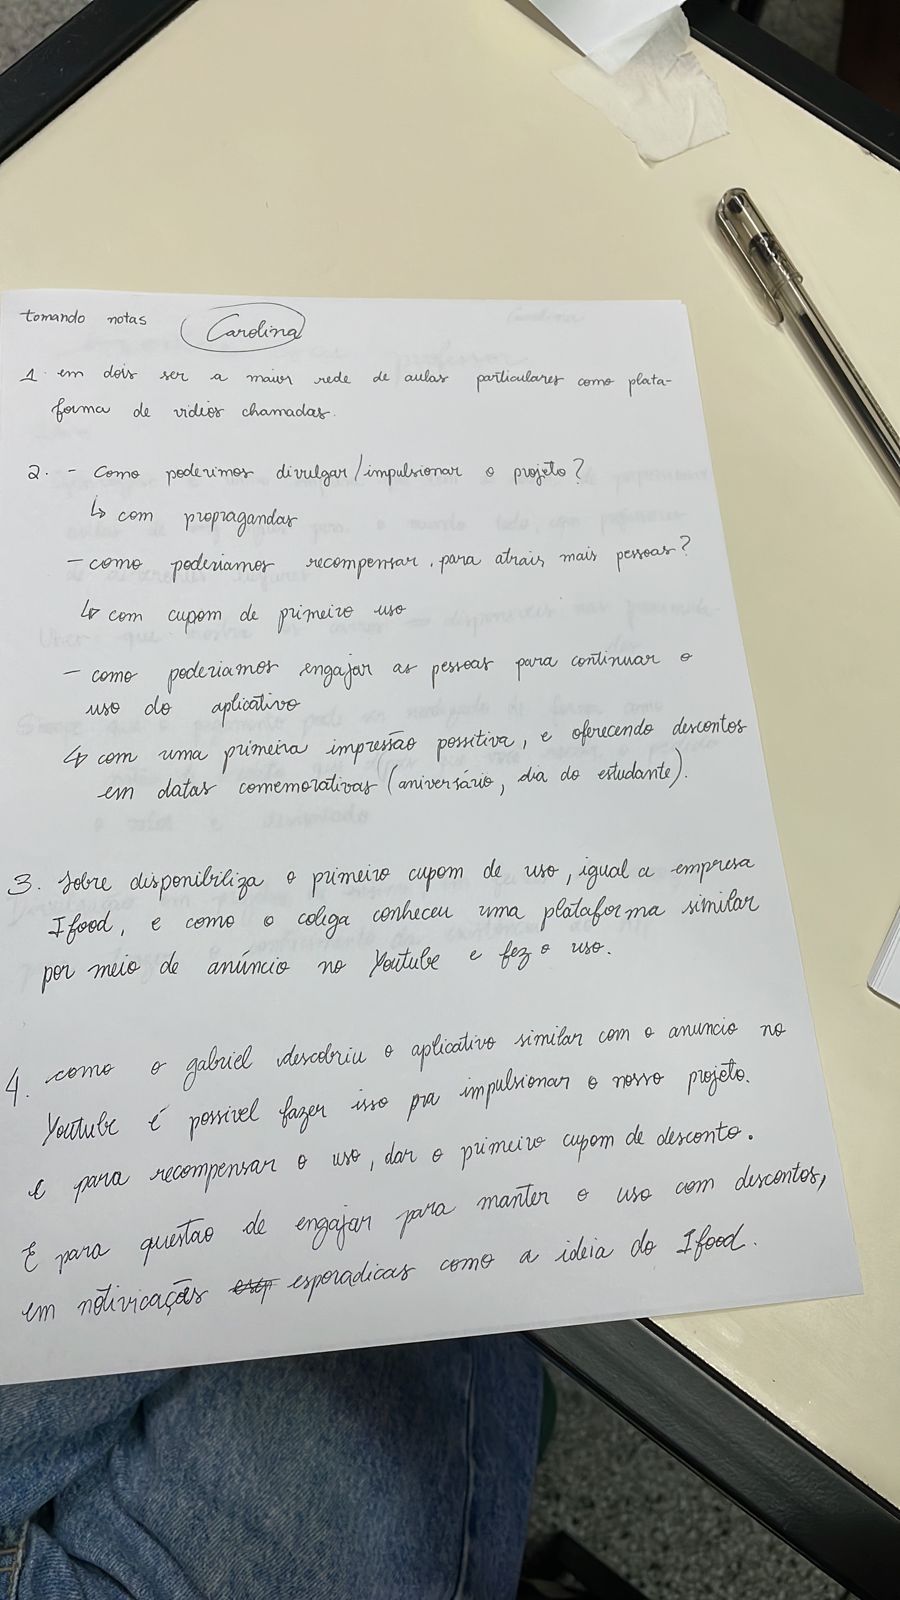 tomando notas Carolina
1. em dois ser a maior rede de aulas particulares como plata-
forma de vidios chamadas.
2. - Como poderimos divulgar/impulsionar o projeto?
↳ com propragandas
- como poderiamos recompensar, para atrais mais pessoas?
↳ com cupom de primeiro uso
- como poderiamos engajar as pessoas para continuar o
uso do aplicativo
↳ com uma primeira impressão possitiva, e oferecendo descontos
em datas comemorativas (aniversário, dia do estudante).
3. Sobre disponibiliza o primeiro cupom de uso, igual a empresa
Ifood, e como o colega conheceu uma plataforma similar
por meio de anúncio no Youtube e fez o uso.
4. como o gabriel descobriu o aplicativo similar com o anuncio no
Youtube é possivel fazer isso pra impulsionar o nosso projeto.
e para recompensar o uso, dar o primeiro cupom de desconto.
E para questão de engajar para manter o uso com descontos,
em notivicações esporadicas como a ideia do Ifood.